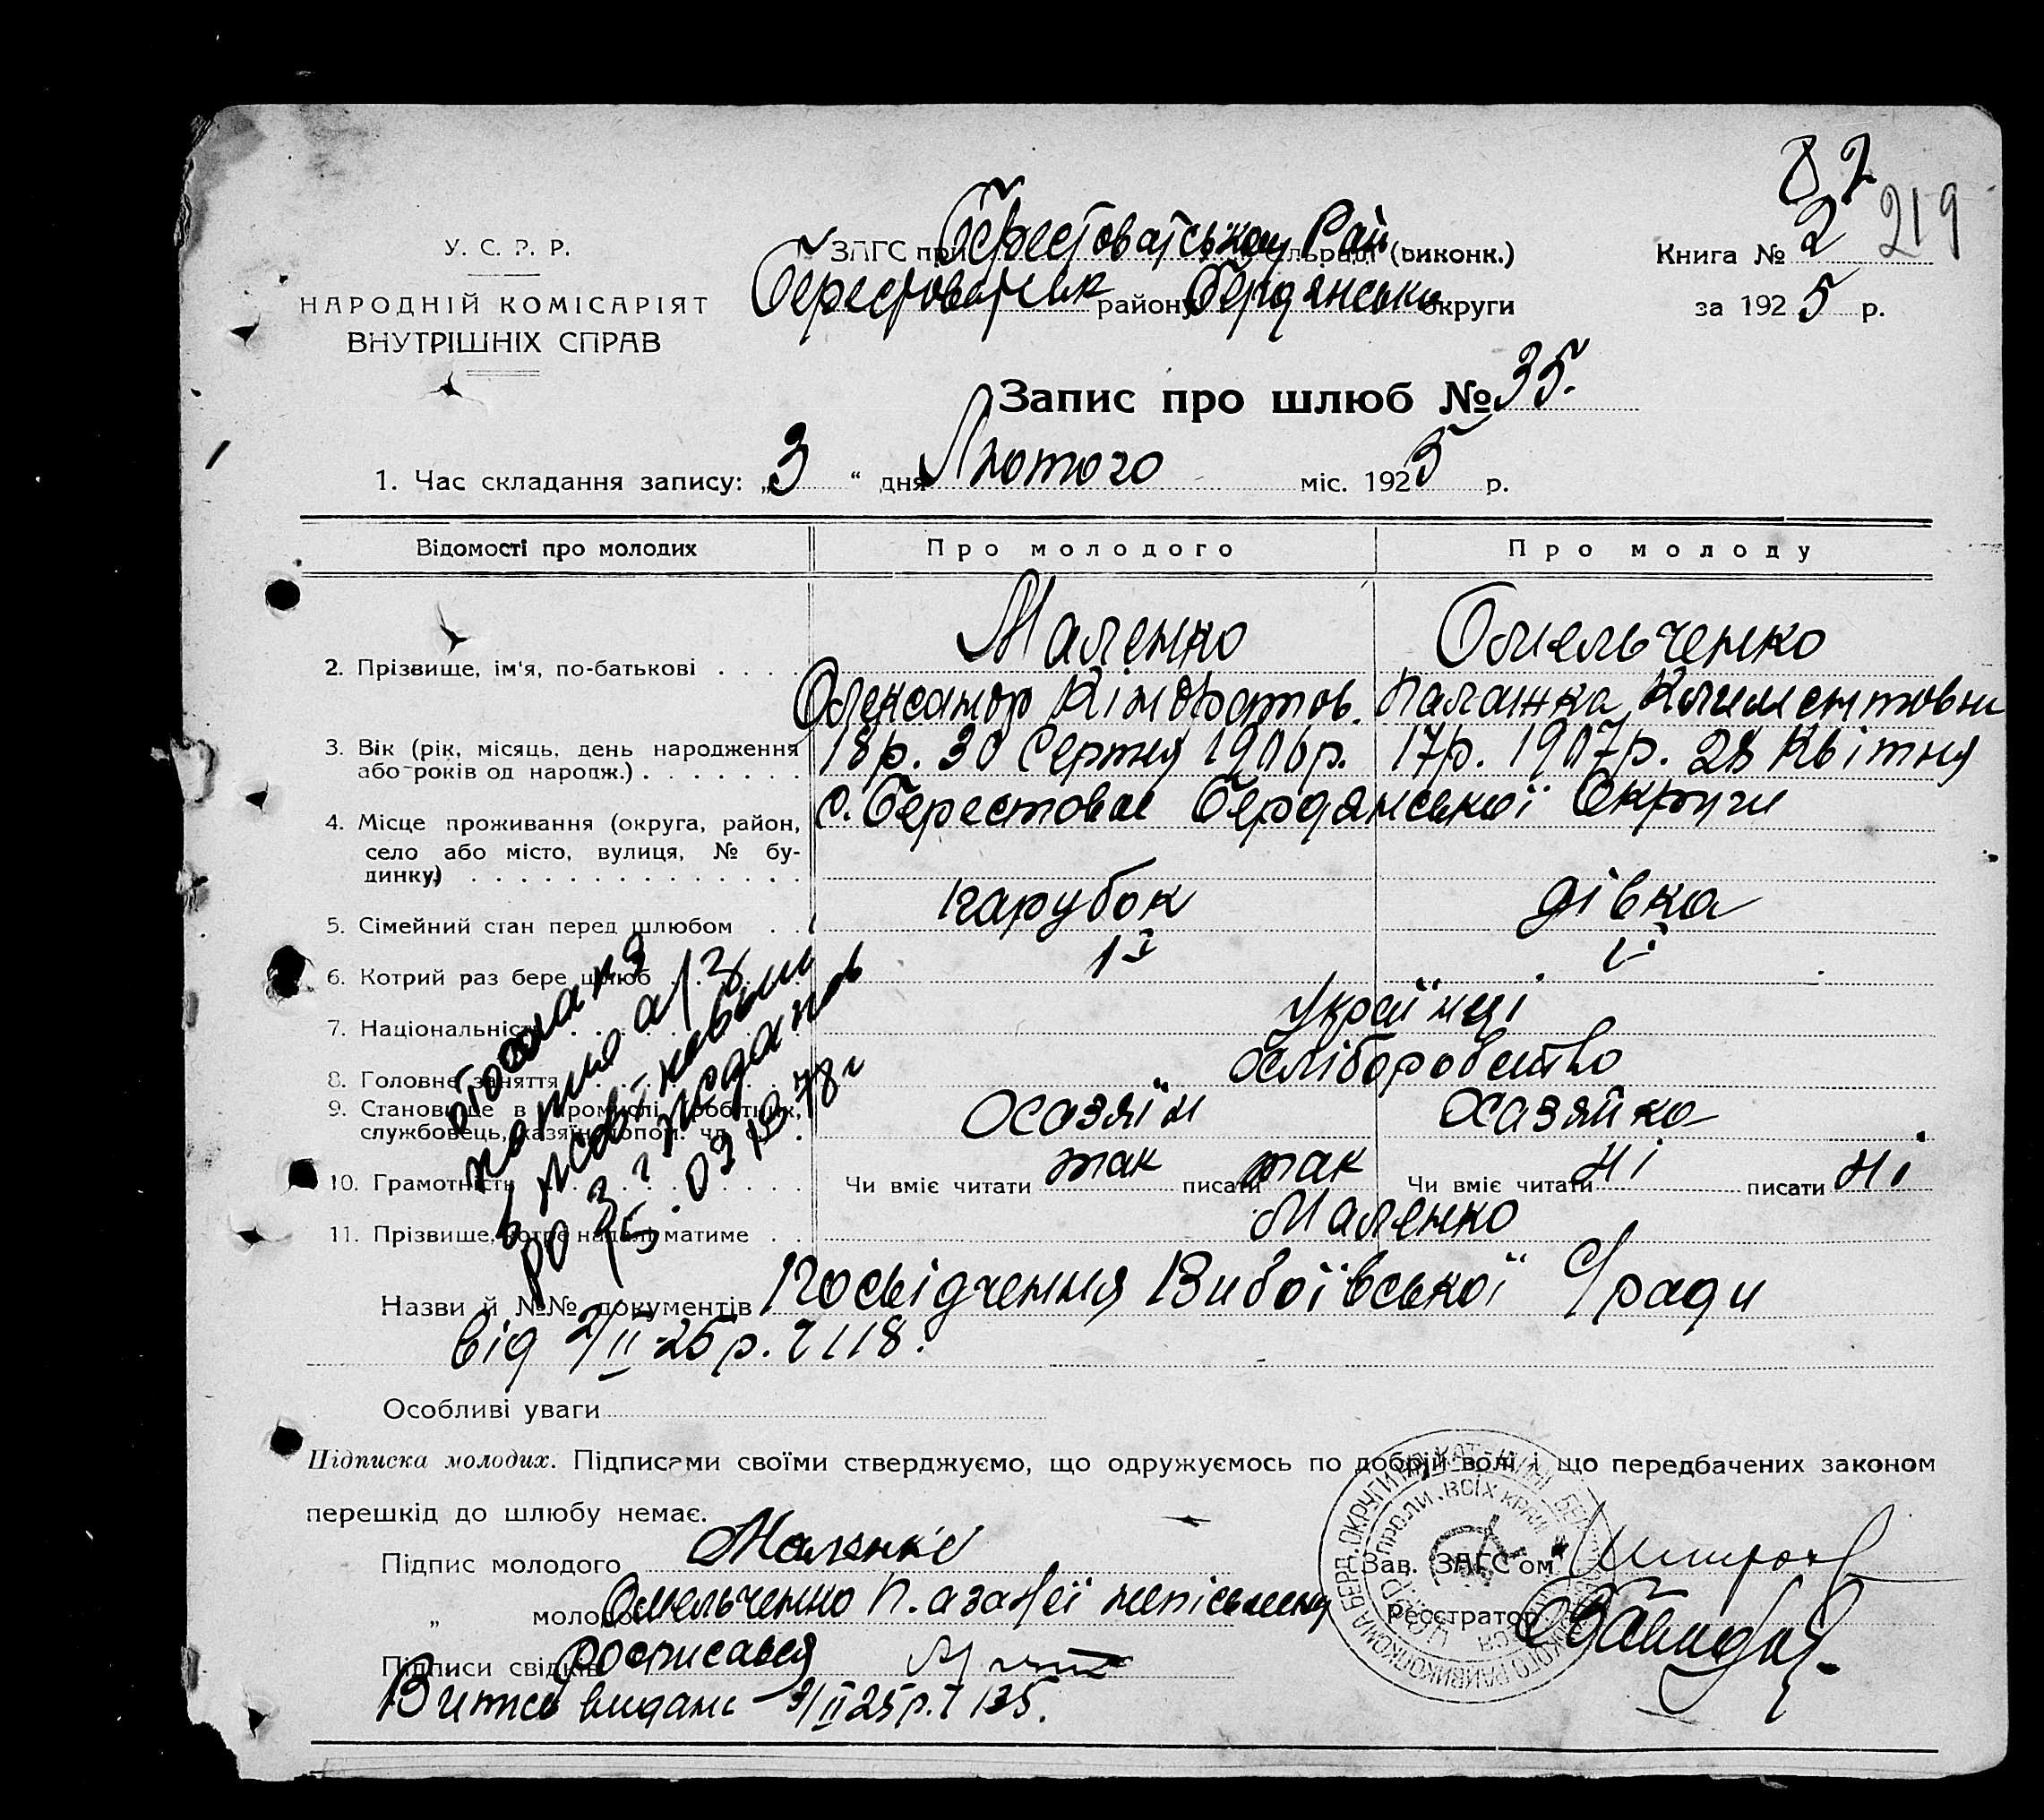 82
219
У. С. Р. Р.
НАРОДНІЙ КОМІСАРІЯТ
ВНУТРІШНІХ СПРАВ
ЗАГС при Берестоватськом Рай сільраді (виконк.)
Берестоватськ району Бердянськ округи
Книга № 2
за 1925 р.
Запис про шлюб № 35.
1. Час складання запису: „3“ дня Лютого міс. 1925 р.
Відомості про молодих Про молодого Про молоду
2. Прізвище, ім'я, по-батькові . . . . Маленко Омельченко
Олександр Кіндратов. Палажка Климентовна
3. Вік (рік, місяць, день народження
або років од народж.) . . . . . . . 18р. 30 Серпня 1906р. 17р. 1907р. 28 Квітня
4. Місце проживання (округа, район,
село або місто, вулиця, № бу-
динку) . . . . . . . . . . . . . . с. Берестовае Бердянської Округи
5. Сімейний стан перед шлюбом . . парубок дівка
6. Котрий раз бере шлюб 1й
7. Національність Українці
8. Головне заняття хліборобство
9. Становище в промислі (робітник,
службовець, хазяїн, допом. чл. Хазяїн Хазяйка
10. Грамотність Чи вміє читати так писати так Чи вміє читати ні писати ні
11. Прізвище, котре надалі матиме . . Маленко
Назви й №№ документів Посвідчення Вибоївської С/ради
від 2/II-25р. ч 118.
Особливі уваги
Підписка молодих. Підписами своїми стверджуємо, що одружуємось по добрій волі і що передбачених законом
перешкід до шлюбу немає.
Підпис молодого Маленко
„ молодої Омельченко П. а за неї неписьмену
Підписи свідків росписався
Зав. ЗАГС'ом
Реєстратор
Витяг видано 3/II 25р. ч 135.
15.03.1978 г